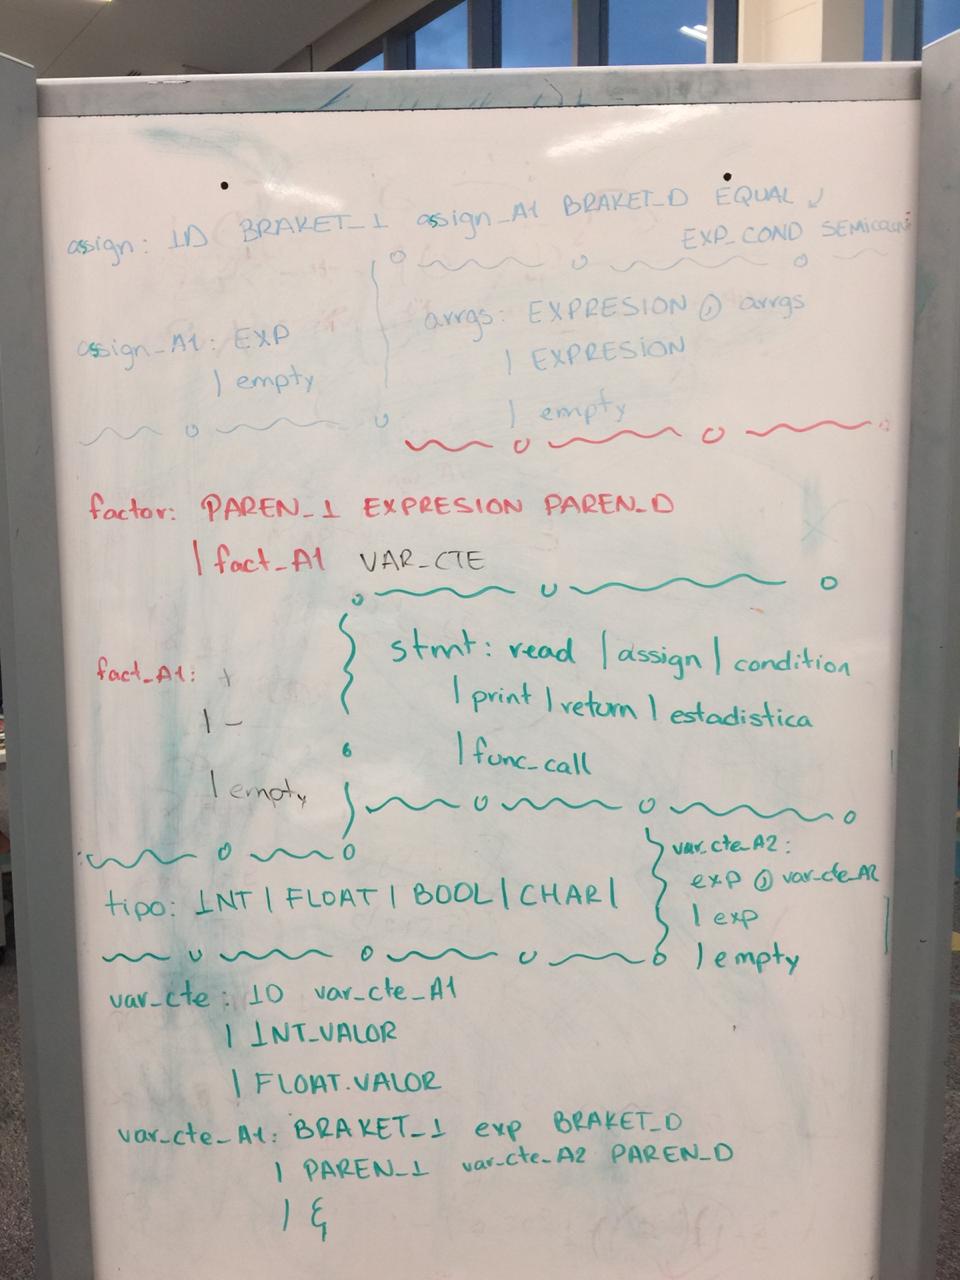 assign: ID BRAKET_I assign_A1 BRAKET_D EQUAL
EXP_COND SEMICOLON
assign_A1: EXP
| empty
arrgs: EXPRESION , arrgs
| EXPRESION
| empty
factor: PAREN_I EXPRESION PAREN_D
| fact_A1 VAR_CTE
fact_A1: +
| -
| empty
stmt: read | assign | condition
| print | return | estadistica
| func_call
tipo: INT | FLOAT | BOOL | CHAR |
var_cte_A2:
exp , var_cte_A2
| exp
| empty
var_cte: ID var_cte_A1
| INT_VALOR
| FLOAT.VALOR
var_cte_A1: BRAKET_I exp BRAKET_D
| PAREN_I var_cte_A2 PAREN_D
| ξ